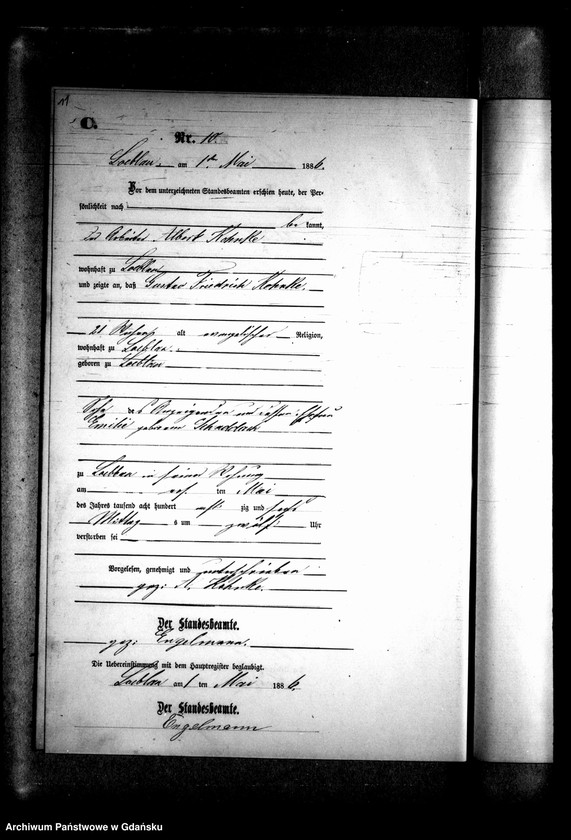 11
C.
Nr. 10.
Loeblau, am 1ten Mai 1886.
Vor dem unterzeichneten Standesbeamten erschien heute, der Per-
sönlichkeit nach
be kannt,
der Arbeiter Albert Kohnke
wohnhaft zu Loeblau
und zeigte an, daß Gustav Friedrich Kohnke.
21 alt evangelischer Religion,
wohnhaft zu Loeblau.
geboren zu Loeblau
Sohn des Anzeigenden und dessen Ehefrau
Emilie geborene
zu Loeblau in seiner Wohnung
am ten Mai
des Jahres tausend acht hundert acht zig und sechs
Mittags um zwölf Uhr
verstorben sei
Vorgelesen, genehmigt und unterschrieben
gez: A. Kohnke.
Der Standesbeamte.
gez: Engelmann.
Die Uebereinstimmung mit dem Hauptregister beglaubigt.
Loeblau am 1 ten Mai 1886.
Der Standesbeamte.
Engelmann
Archiwum Państwowe w Gdańsku